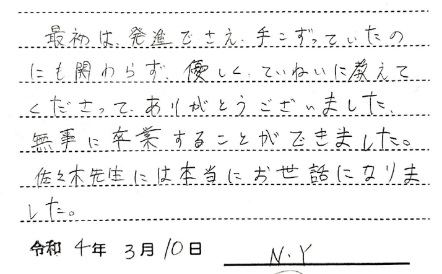 最初は、発進でさえ、手こずっていたの
にも関わらず、優しく、ていねいに教えて
くださって、ありがとうございました、
無事に卒業することができました。
佐々木先生には本当にお世話になりま
した。
令和 4年 3月 10日 N.Y